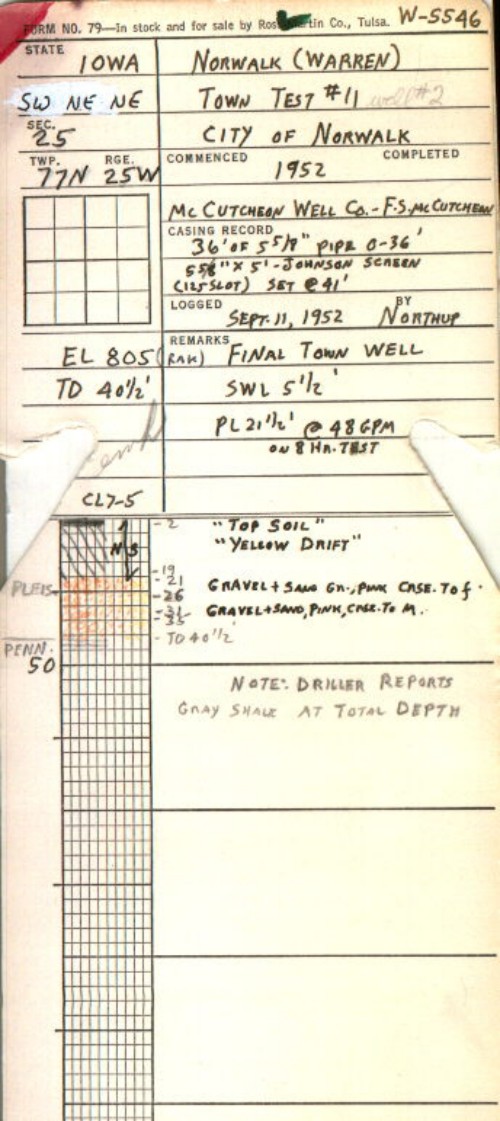 FORM NO. 79—In stock and for sale by Ross-Martin Co., Tulsa. W-5546
STATE
IOWA
NORWALK (WARREN)
SW NE NE
TOWN TEST #11 well #2
SEC.
25
CITY OF NORWALK
TWP. RGE.
77N 25W
COMMENCED COMPLETED
1952
MCCUTCHEON WELL CO.-F.S. MCCUTCHEON
CASING RECORD
36' OF 5 5/8" PIPE 0-36'
5 5/8" X 5'-JOHNSON SCREEN
(125 SLOT) SET @ 41'
LOGGED BY
SEPT. 11, 1952 NORTHUP
REMARKS
EL 805 (RAK) FINAL TOWN WELL
TD 40 1/2' SWL 5 1/2'
PL 21 1/2' @ 48 GPM
ON 8 HR. TEST
CL7-5
-2 "TOP SOIL"
NS "YELLOW DRIFT"
-19
-21 GRAVEL + SAND GR., PINK CRSE. TO f.
PLEIS.
-26
-31 GRAVEL + SAND, PINK, CRSE. TO M.
-35
- TD 40 1/2
PENN.
50
NOTE: DRILLER REPORTS
GRAY SHALE AT TOTAL DEPTH